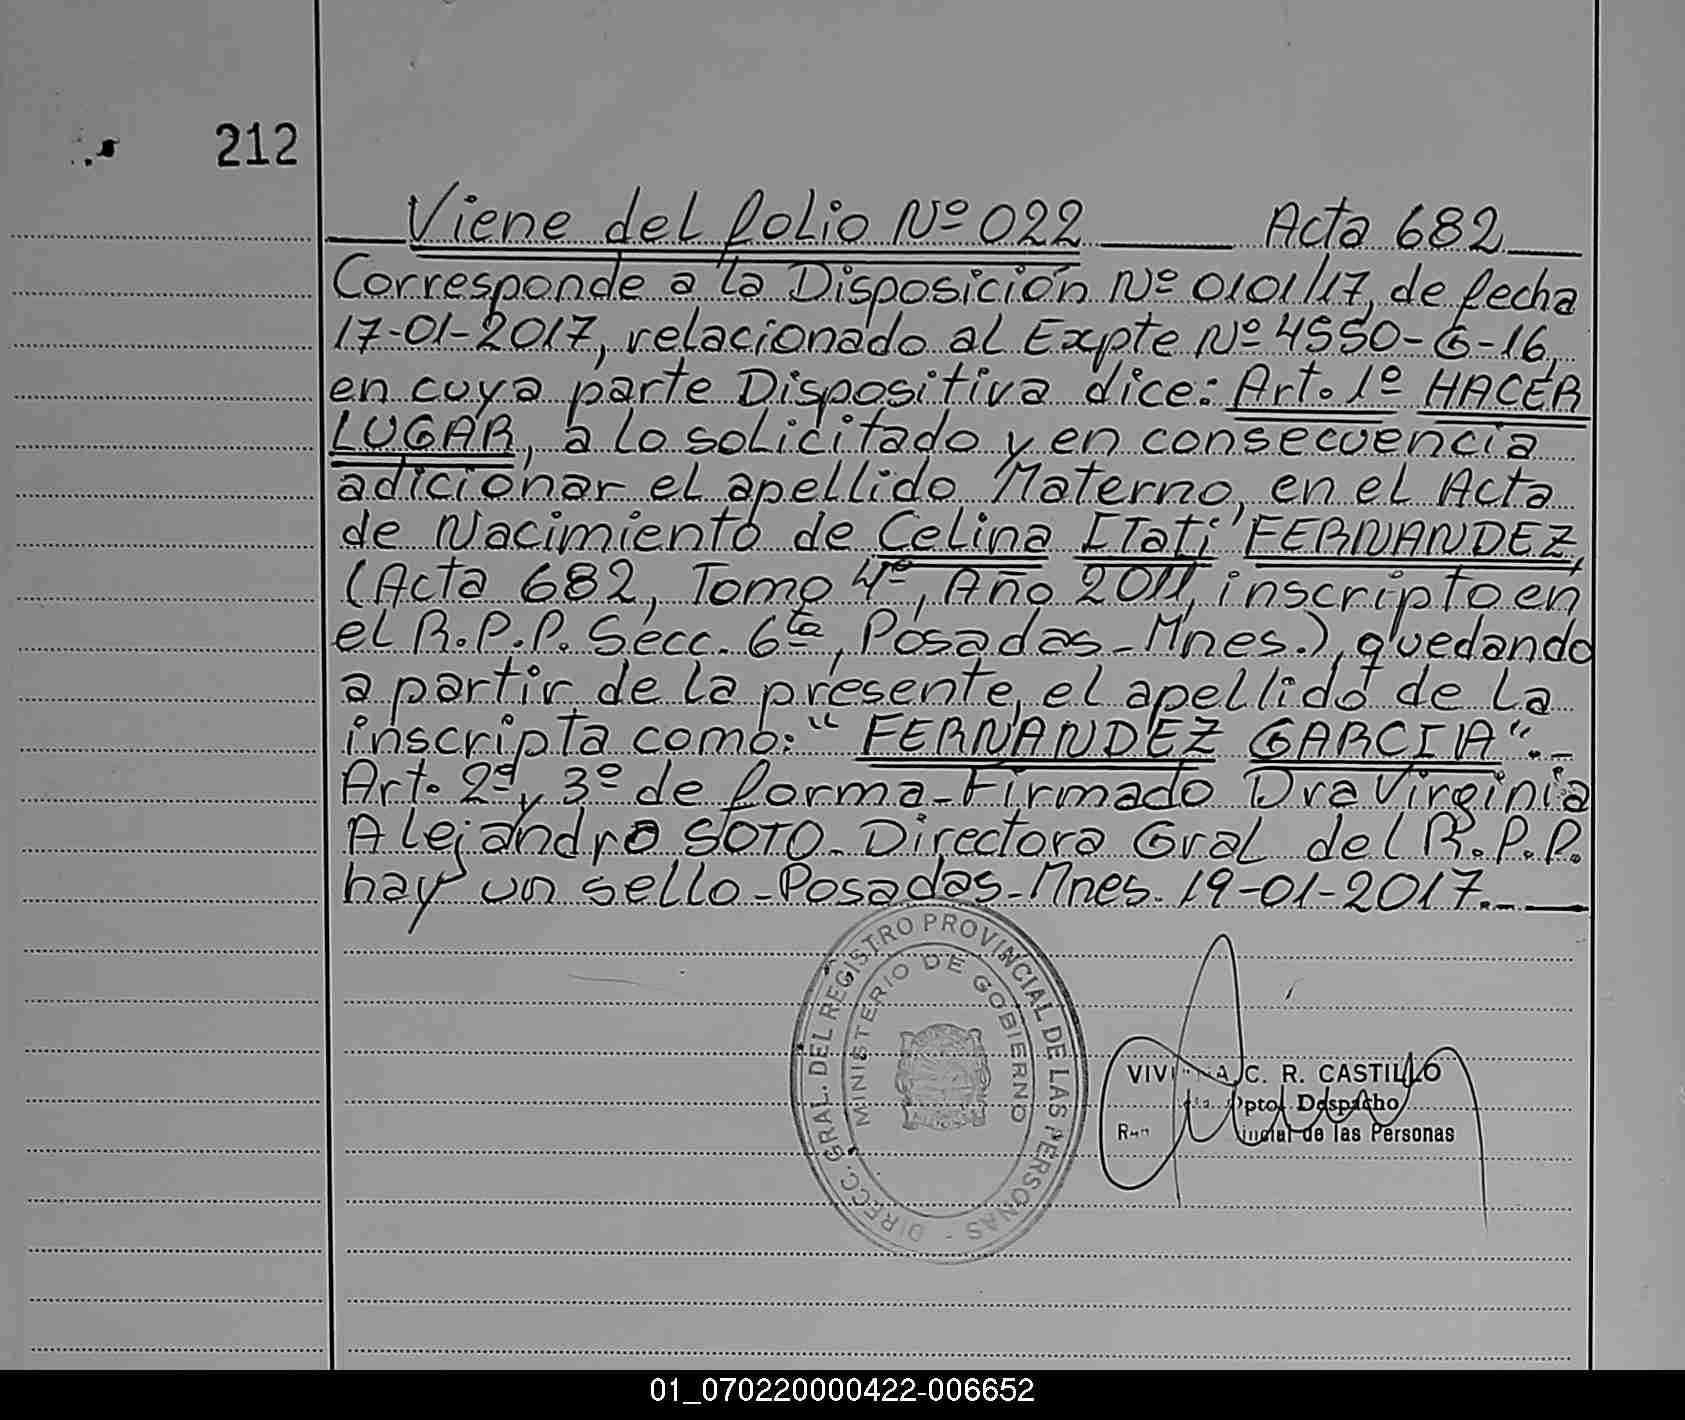 212
Viene del folio Nº 022 Acta 682
Corresponde a la Disposición Nº 0101/17, de fecha
17-01-2017, relacionado al Expte Nº 4550-G-16,
en cuya parte Dispositiva dice: Art. 1º HACER
LUGAR, a lo solicitado y en consecuencia
adicionar el apellido Materno, en el Acta
de Nacimiento de Celina Itatí FERNANDEZ,
(Acta 682, Tomo 4º, Año 2011, inscripto en
el R.P.P. Secc. 6ta, Posadas-Mnes.), quedando
a partir de la presente, el apellido de la
inscripta como: "FERNANDEZ GARCIA".-
Art. 2º y 3º de forma-Firmado Dra Virginia
Alejandro SOTO-Directora Gral del R.P.P.
hay un sello-Posadas-Mnes. 19-01-2017.-
DIRECC. GRAL. DEL REGISTRO PROVINCIAL DE LAS PERSONAS -
MINISTERIO DE GOBIERNO
C. R. CASTILLO
Dpto. Despacho
de las Personas
01_070220000422-006652